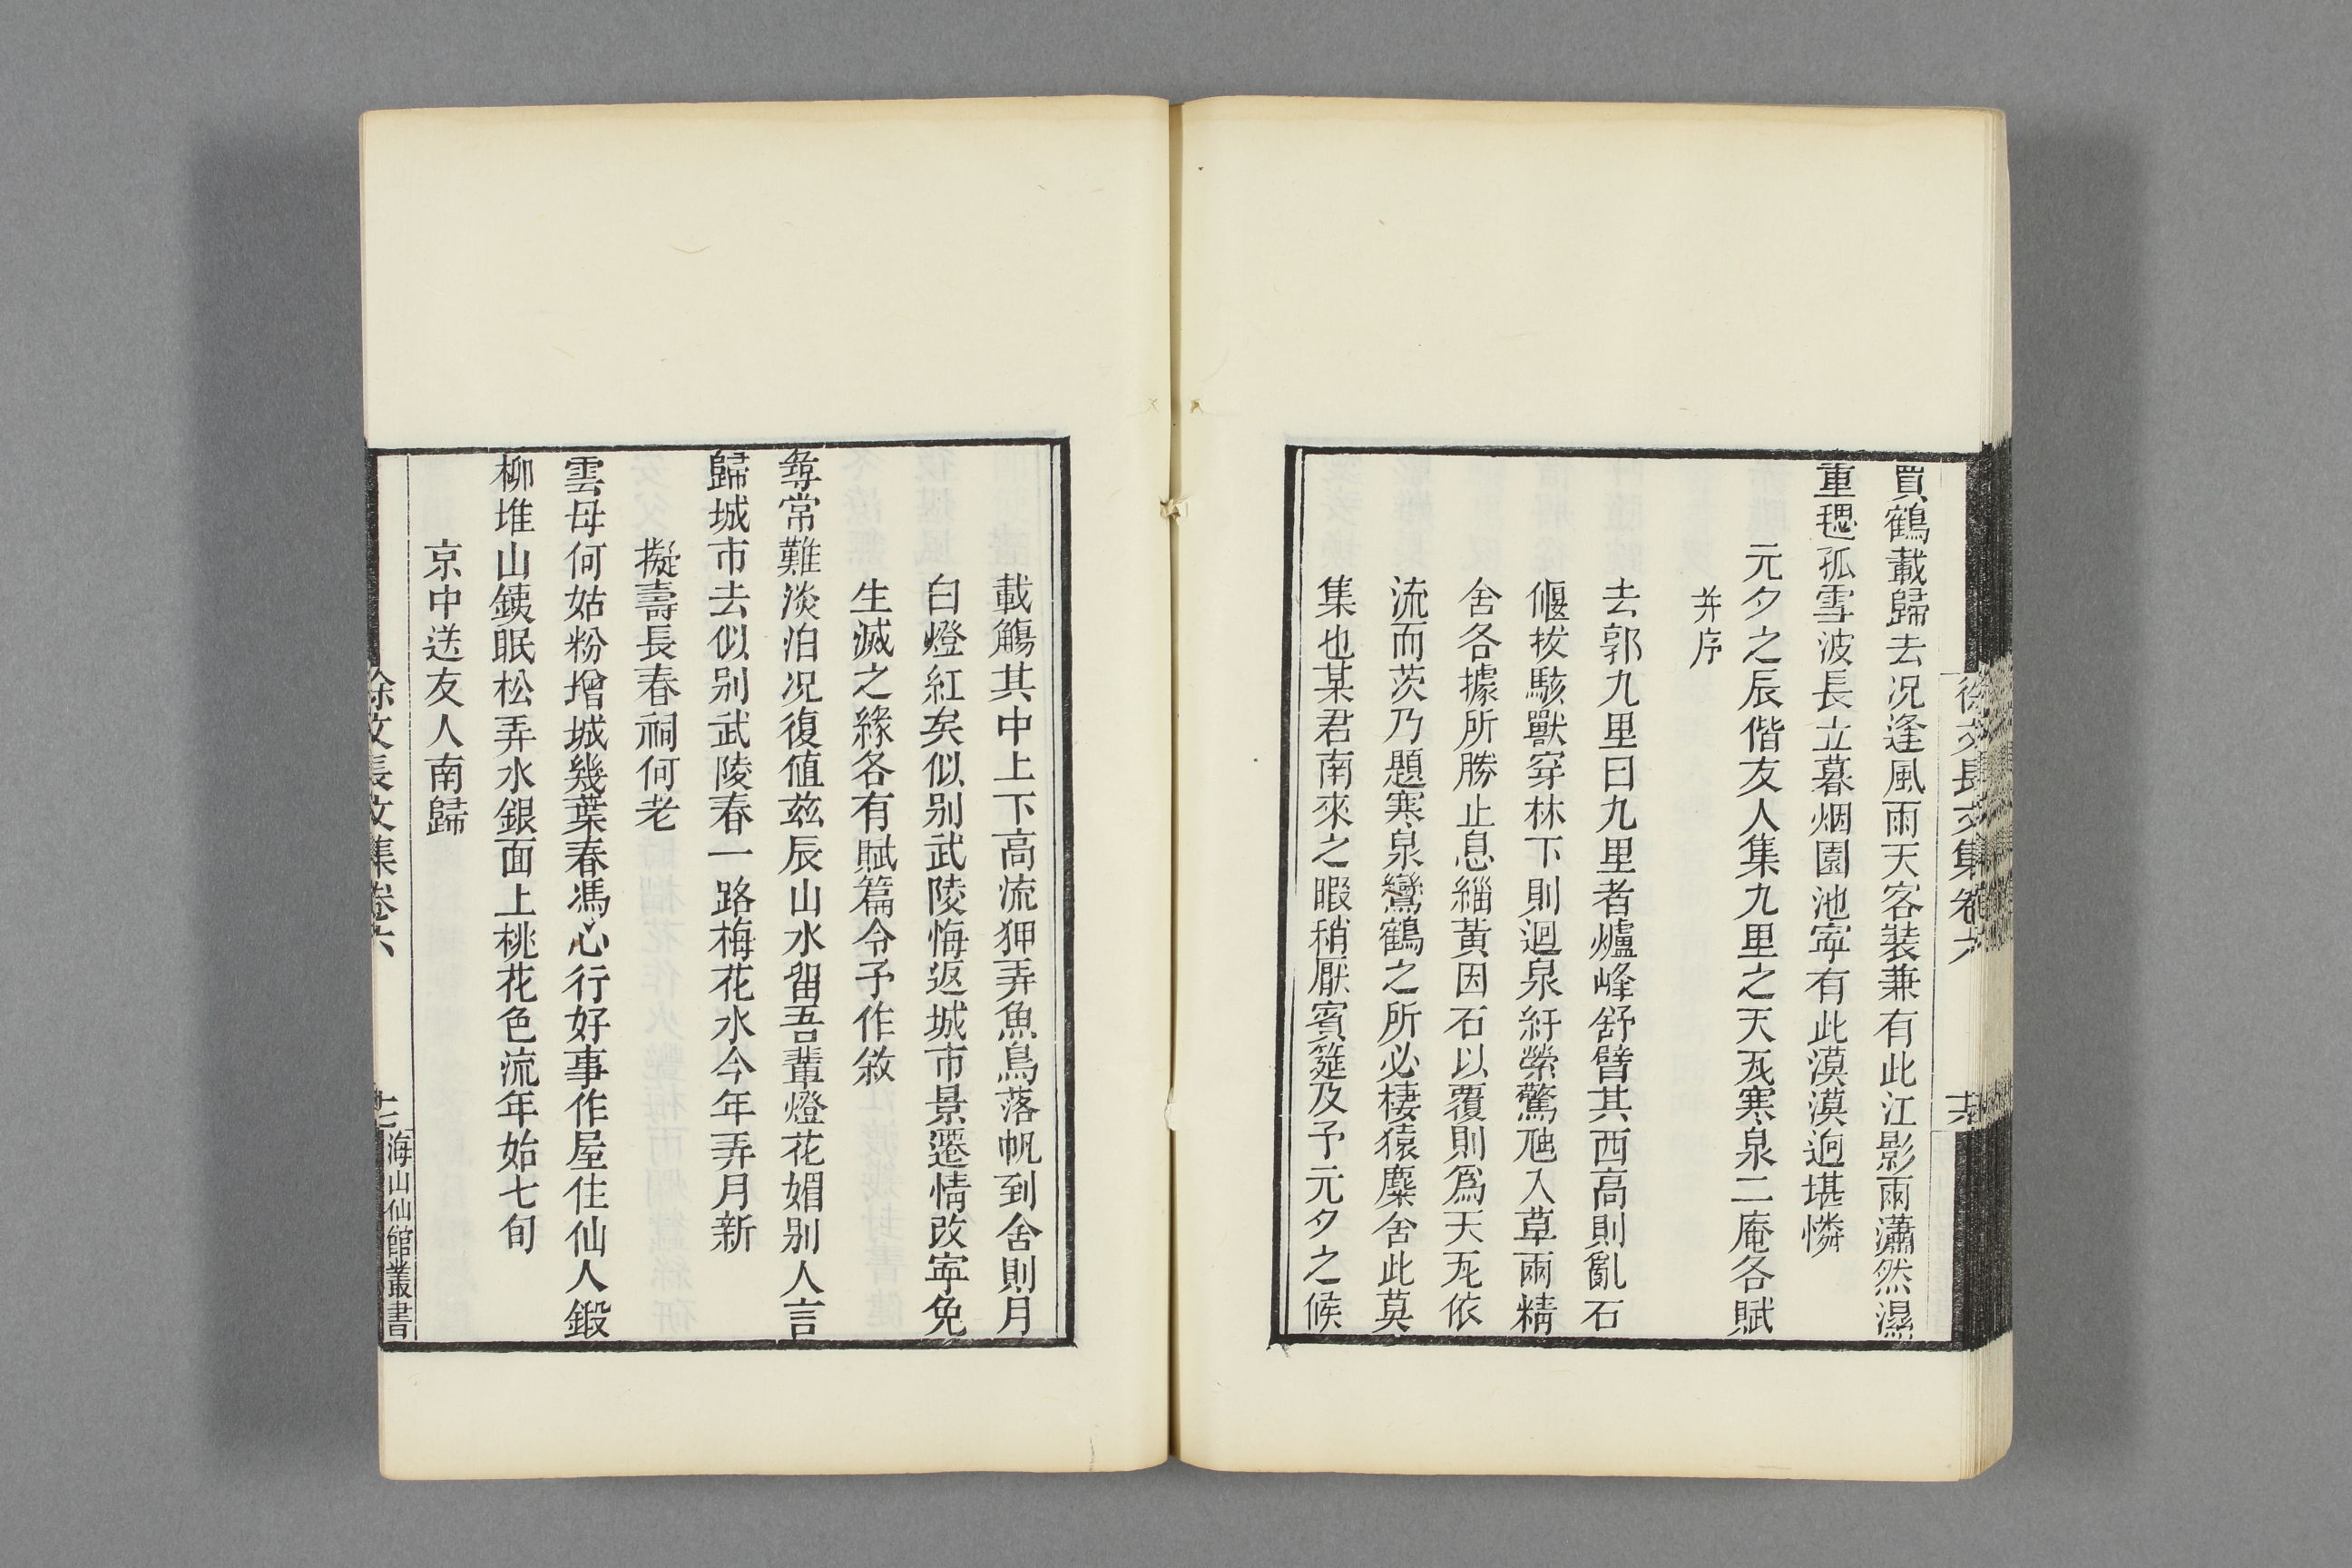 徐文長文集卷六
買鶴載歸去况逢風雨天客裝兼有此江影兩瀟然濕
重毸孤雪波長立暮烟園池寧有此漠漠逈堪憐
元夕之辰偕友人集九里之天瓦寒泉二庵各賦
并序
去郭九里曰九里者爐峰舒臂其西高則亂石
偃拔駭獸穿林下則迴泉紆縈驚虺入草兩精
舍各據所勝止息緇黃因石以覆則爲天瓦依
流而茨乃題寒泉鸞鶴之所必棲猿麋舍此莫
集也某君南來之暇稍厭賓筵及予元夕之候
載觴其中上下高流狎弄魚鳥落帆到舍則月
白燈紅矣似别武陵悔返城市景遷情改寧免
生滅之緣各有賦篇令予作敘
尋常難淡泊况復值兹辰山水留吾輩燈花媚别人言
歸城市去似别武陵春一路梅花水今年弄月新
擬壽長春祠何老
雲母何姑粉增城幾葉春馮心行好事作屋住仙人鍛
柳堆山銕眠松弄水銀面上桃花色流年始七旬
京中送友人南歸
徐文長文集卷六
海山仙館叢書